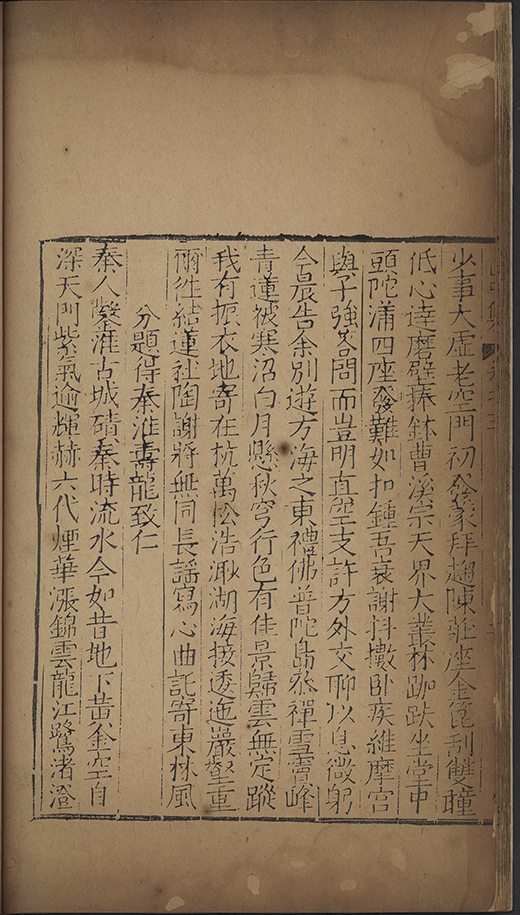 少事大虛老空門初發蒙拜趨陳莊座金篦刮雙瞳
低心達磨壁捧鉢曹溪宗天界大叢林跏趺坐堂中
頭陀滿四座發難如扣鍾吾衰謝抖擻卧疾維摩宮
與子強荅問而豈明真空支許方外交聊以息微躬
今晨告余別遊方海之東禮佛普陀島叅禪雪竇峰
青蓮被寒沼白月懸秋穹行色有佳景歸雲無定蹤
我有振衣地寄在杭萬松浩溆湖海接透迤巖壑重
爾徃結蓮社陶謝將無同長謡寫心曲託寄東林風
分題得秦淮壽龍致仁
秦人鑿淮古城磧秦時流水今如昔地下黃金空自
深天門紫氣逾輝赫六代煙華漲錦雲龍江鷺渚澄